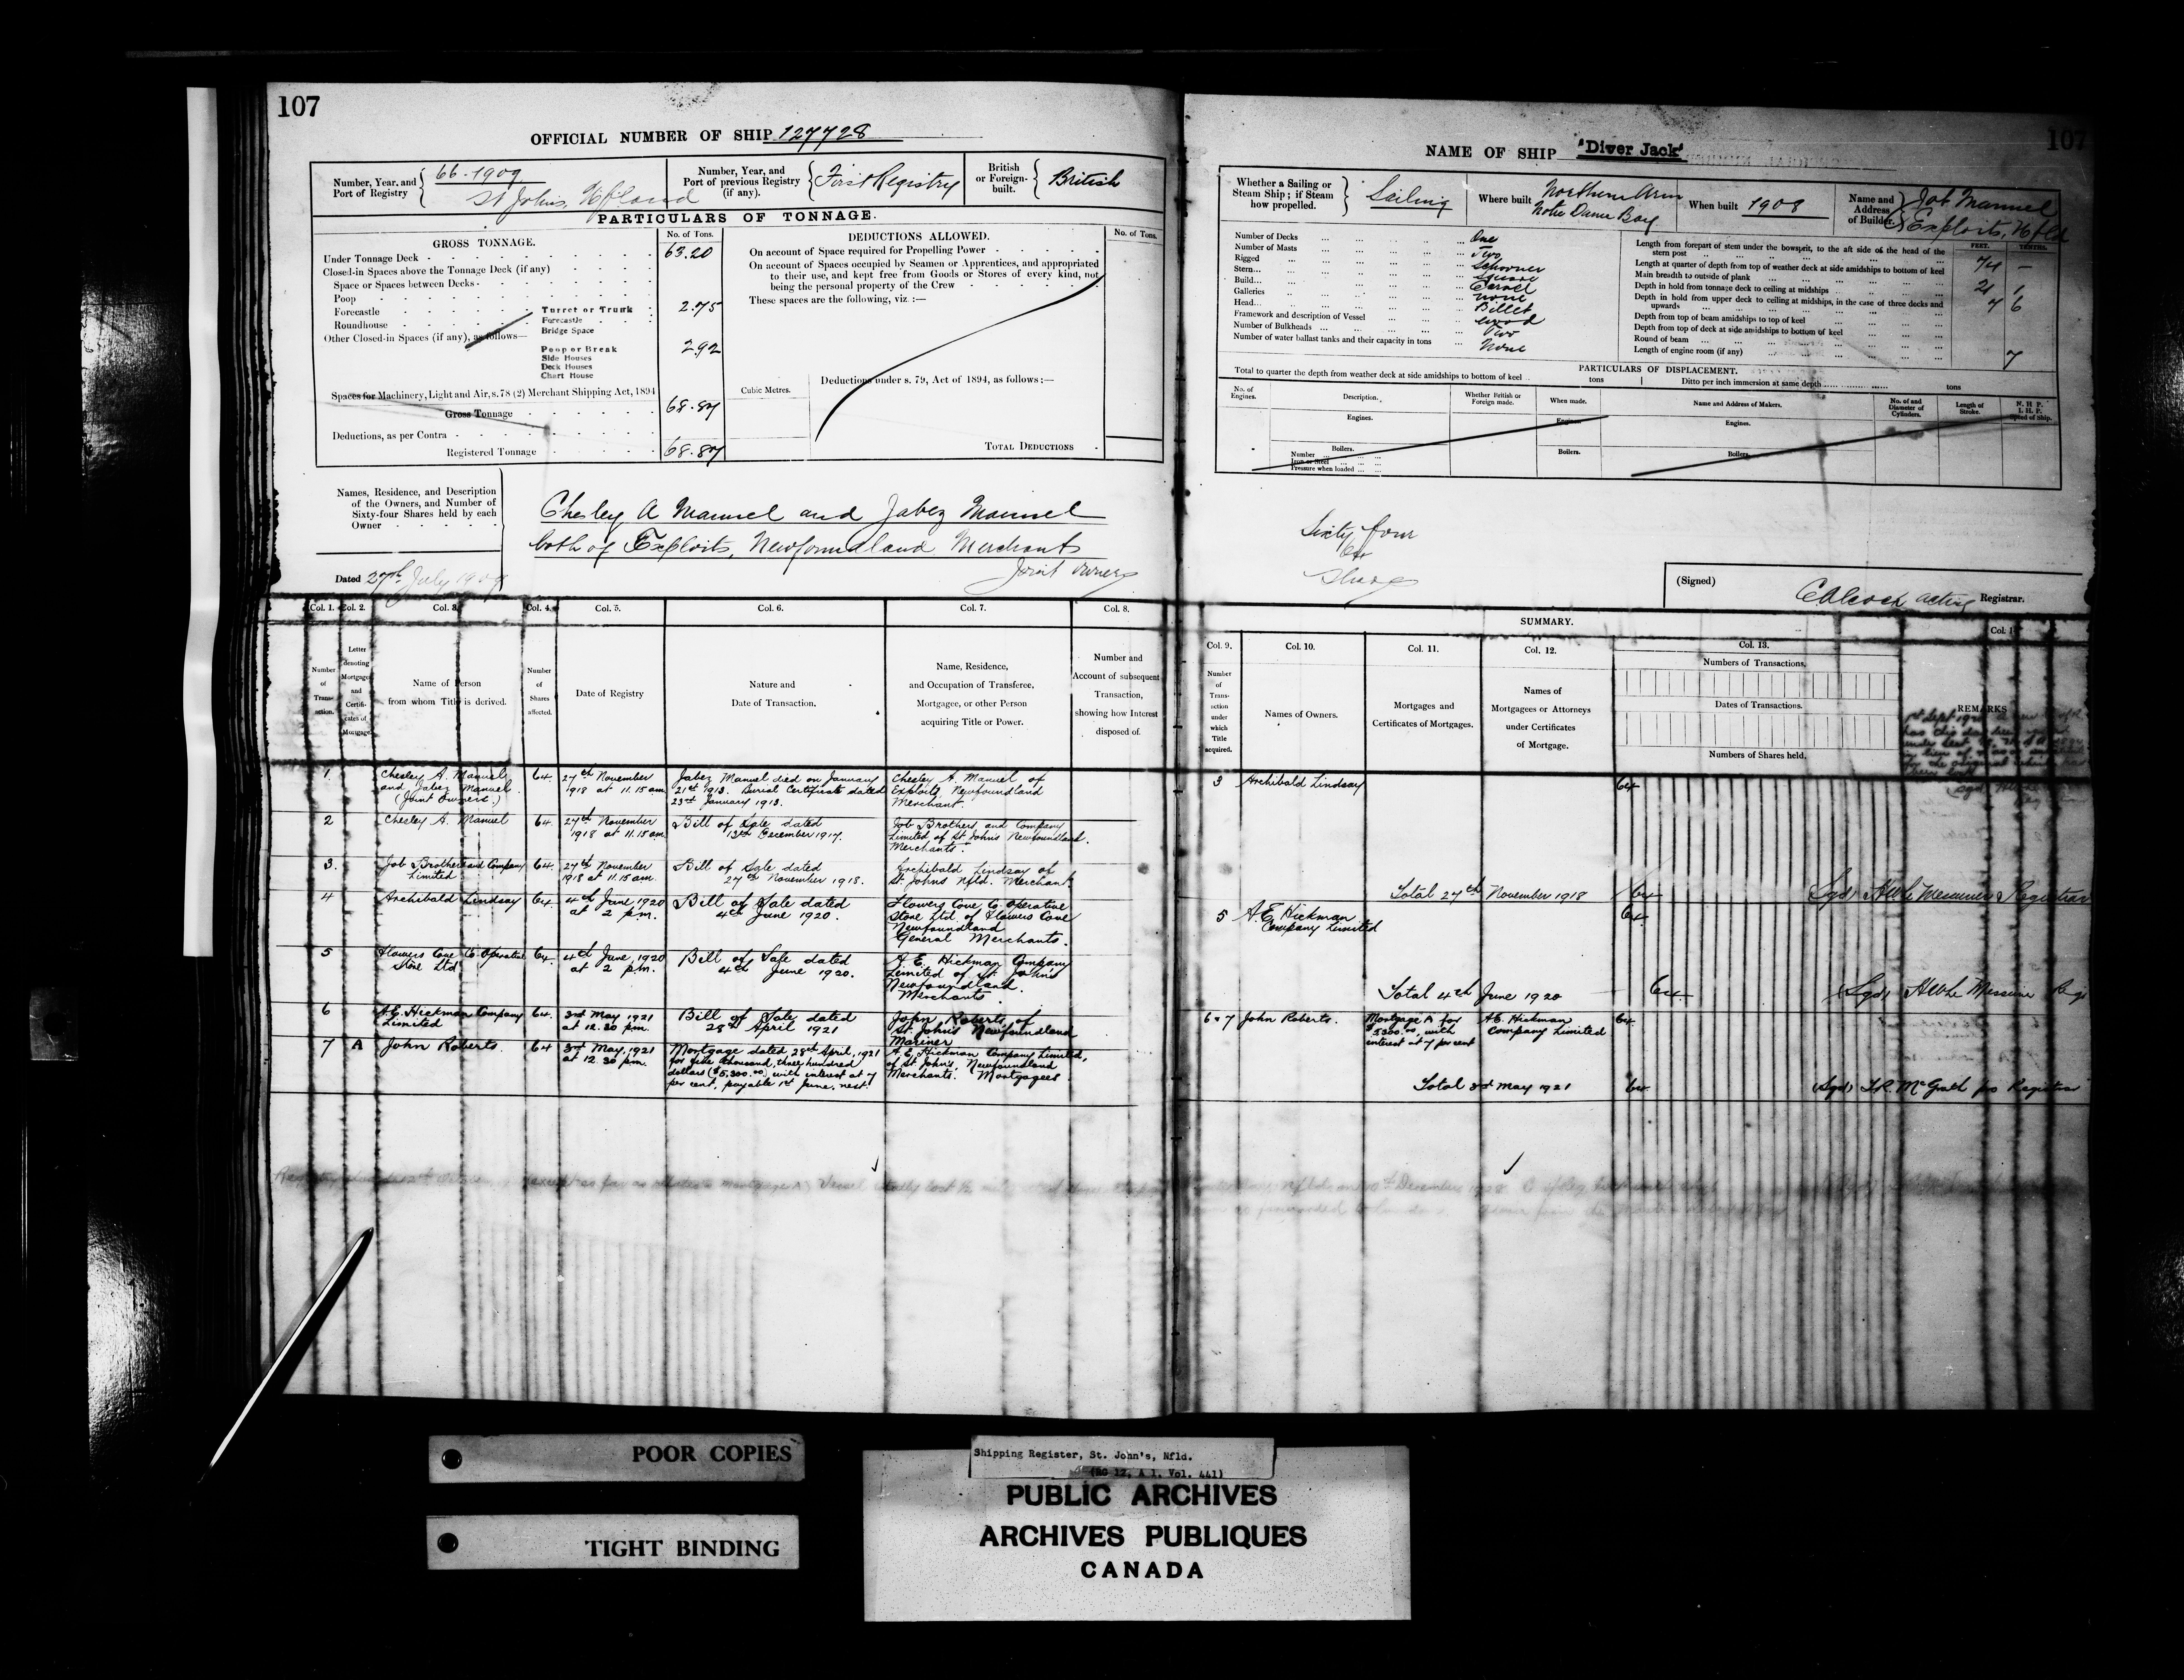 107
OFFICIAL NUMBER OF SHIP 127728
Number, Year, and Port of Registry 66-1909 St Johns, Nfland
Number, Year, and Port of previous Registry (if any). First Registry
British or Foreign-built. British
PARTICULARS OF TONNAGE.
GROSS TONNAGE.
No. of Tons.
Under Tonnage Deck 63.20
Closed-in Spaces above the Tonnage Deck (if any)
Space or Spaces between Decks
Poop
Forecastle Turret or Trunk 2.75
Roundhouse Forecastle
Bridge Space
Other Closed-in Spaces (if any), as follows—
Poop or Break 2.92
Side Houses
Deck Houses
Chart House
Spaces for Machinery, Light and Air, s.78 (2) Merchant Shipping Act, 1894
Gross Tonnage 68.87
Deductions, as per Contra
Registered Tonnage 68.87
DEDUCTIONS ALLOWED.
No. of Tons.
On account of Space required for Propelling Power
On account of Spaces occupied by Seamen or Apprentices, and appropriated
to their use, and kept free from Goods or Stores of every kind, not
being the personal property of the Crew
These spaces are the following, viz :—
Cubic Metres.
Deductions under s. 79, Act of 1894, as follows :—
TOTAL DEDUCTIONS
Names, Residence, and Description
of the Owners, and Number of
Sixty-four Shares held by each
Owner
Chesley A Manuel and Jabez Manuel
both of Exploits, Newfoundland Merchants
Joint owners
Dated 27th July 1909
Col. 1. Col. 2. Col. 3. Col. 4. Col. 5. Col. 6. Col. 7. Col. 8.
Number of Transaction.
Letter denoting Mortgages and Certificates of Mortgage.
Name of Person from whom Title is derived.
Number of Shares affected.
Date of Registry
Nature and Date of Transaction.
Name, Residence, and Occupation of Transferee, Mortgagee, or other Person acquiring Title or Power.
Number and Account of subsequent Transaction, showing how Interest disposed of.
1 Chesley A. Manuel and Jabez Manuel (Joint Owners.) 64 27th November 1918 at 11.15 am Jabez Manuel died on January 21st 1913. Burial Certificate dated 23rd January 1913. Chesley A. Manuel of Exploits Newfoundland Merchant.
2 Chesley A. Manuel 64 27th November 1918 at 11.15 am Bill of Sale dated 13th December 1917. Job Brothers and Company Limited of St. Johns Newfoundland. Merchants.
3. Job Brothers and Company Limited 64 27th November 1918 at 11.15 am Bill of Sale dated 27th November 1918. Archibald Lindsay of St. Johns Nfld. Merchant.
4 Archibald Lindsay 64 4th June 1920 at 2 p.m. Bill of Sale dated 4th June 1920. Flowers Cove Co. Operative Store Ltd. of Flowers Cove Newfoundland General Merchants.
5 Flowers Cove Co. Operative Store Ltd 64 4th June, 1920 at 2 p.m. Bill of Sale dated 4th June 1920. A. E. Hickman Company Limited of St. Johns Newfoundland. Merchants
6 A.E. Hickman Company Limited 64 3rd May 1921 at 12.30 p.m. Bill of Sale dated 28th April 1921 John Roberts of St. Johns Newfoundland Mariner
7 A John Roberts 64 3rd May, 1921 at 12.30 p.m. Mortgage dated 28th April, 1921 for five thousand, three hundred dollars ($5,300.00) with interest at 7 per cent, payable 1st June, next. A. E. Hickman Company Limited, of St. Johns, Newfoundland Merchants. Mortgagees
107
NAME OF SHIP "Diver Jack"
Whether a Sailing or Steam Ship; if Steam how propelled. Sailing
Where built Northern Arm Notre Dame Bay
When built 1908
Name and Address of Builder. Job Manuel Exploits, Nfld
Number of Decks One
Number of Masts Two
Rigged Schooner
Stern Square
Build Carvel
Galleries None
Head Billet
Framework and description of Vessel Wood
Number of Bulkheads Two
Number of water ballast tanks and their capacity in tons None
FEET. TENTHS.
Length from forepart of stem under the bowsprit, to the aft side of the head of the stern post 74 –
Length at quarter of depth from top of weather deck at side amidships to bottom of keel
Main breadth to outside of plank 21 1
Depth in hold from tonnage deck to ceiling at midships
Depth in hold from upper deck to ceiling at midships, in the case of three decks and upwards
Depth from top of beam amidships to top of keel
Depth from top of deck at side amidships to bottom of keel
Round of beam
Length of engine room (if any)
PARTICULARS OF DISPLACEMENT.
Total to quarter the depth from weather deck at side amidships to bottom of keel tons
Ditto per inch immersion at same depth tons
No. of Engines.
Description.
Whether British or Foreign made.
When made.
Name and Address of Makers.
No. of and Diameter of Cylinders.
Length of Stroke.
N. H. P.
I. H. P.
Speed of Ship.
Engines. Engines. Engines.
Boilers. Boilers. Boilers.
Number
Iron or Steel
Pressure when loaded
Sixty four
Shares
(Signed) Registrar.
SUMMARY.
Col. 9. Col. 10. Col. 11. Col. 12. Col. 13. Col. 1
Number of Transaction under which Title acquired.
Names of Owners.
Mortgages and Certificates of Mortgages.
Names of Mortgagees or Attorneys under Certificates of Mortgage.
Numbers of Transactions.
Dates of Transactions.
Numbers of Shares held.
REMARKS
3 Archibald Lindsay 64
Total 27th November 1918 64 Registrar
5 A. E. Hickman Company Limited 64
Total 4th June 1920 64
6 & 7 John Roberts. Mortgage A for $5300.00, with interest at 7 per cent A.E. Hickman Company Limited 64
Total 3rd May 1921 64 (Sgd) McGrath pro Registrar
POOR COPIES
TIGHT BINDING
Shipping Register, St. John's, Nfld.
(RG 12, A 1, Vol. 441)
PUBLIC ARCHIVES
ARCHIVES PUBLIQUES
CANADA